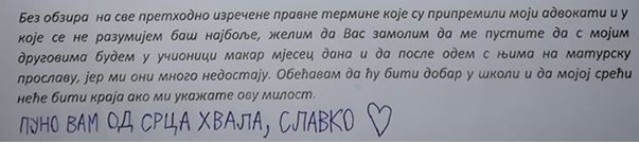 Без обзира на све претходно изречене правне термине које су припремили моји адвокати и у
које се не разумијем баш најбоље, желим да Вас замолим да ме пустите да с мојим
друговима будем у учионици макар мјесец дана и да после одем с њима на матурску
прославу, јер ми они много недостају. Обећавам да ћу бити добар у школи и да мојој срећи
неће бити краја ако ми укажете ову милост.
ПУНО ВАМ ОД СРЦА ХВАЛА, СЛАВКО ♡